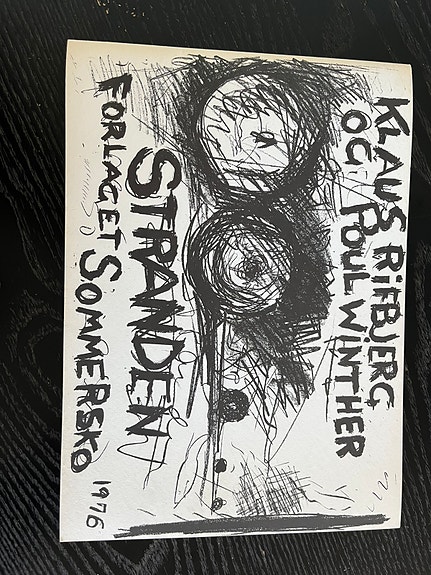 KLAUS RIFBJERG
OG POUL WINTHER
STRANDEN
FORLAGET SOMMERSKO 1976